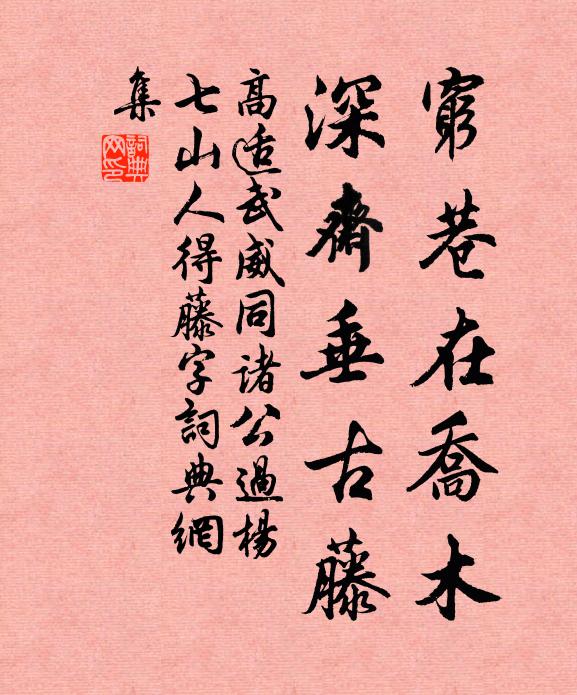 窮巷在喬木
深齋垂古藤
高適武威同諸公過楊
七山人得藤字詞典網
集
詞典
网印